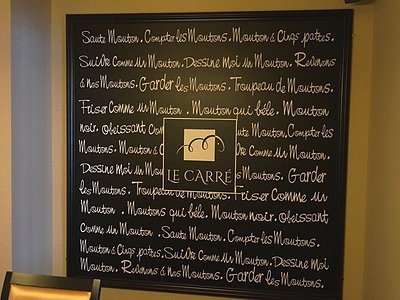 Saute Mouton. Compter les Moutons. Mouton à Cinq pattes.
Suivre Comme un Mouton. Dessine Moi un Mouton. Revenons
à nos Moutons. Garder les Moutons. Troupeau de Moutons.
Friser Comme un Mouton. Mouton qui bêle. Mouton
noir. Obéissant Com Mouton. Compter les
Moutons. Mouton à Comme un Mouton.
LE CARRÉ
Dessine Moi un Mou outons. Garder
les Moutons. Troupeau de Moutons. Friser Comme un
Mouton. Moutons qui bêle. Mouton noir. Obéissant
Comme un Mouton. Saute Mouton. Compter les Moutons.
Mouton à Cinq pattes. Suivre Comme un Mouton. Dessine Moi
un Mouton. Revenons à nos Moutons. Garder les Moutons.